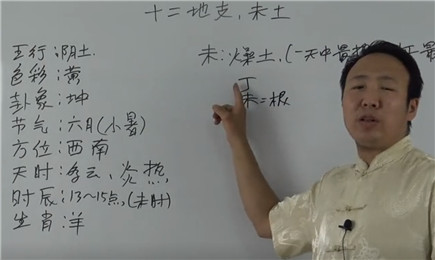 十二地支,未土
五行:阴土
色彩:黄
卦象:坤
节气:六月(小暑)
方位:西南
天时:多云,炎热
时辰:13~15点,(未时)
生肖:羊
未:燥土,(一天中最
丁
未=根